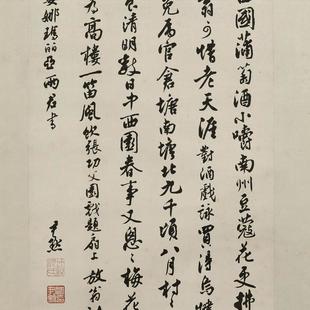 西國蒲萄酒小嚼南州豆蔻花更拂
翁可惜老天涯 對酒戲詠 買得烏犍
免屬官倉塘南塘北九千頃八月村〻
食清明數日中西園春事又怱〻梅花
為高樓一笛風 飲張功父園戲題扇上 放翁詩
娜瑪丽亞兩君書
尹默